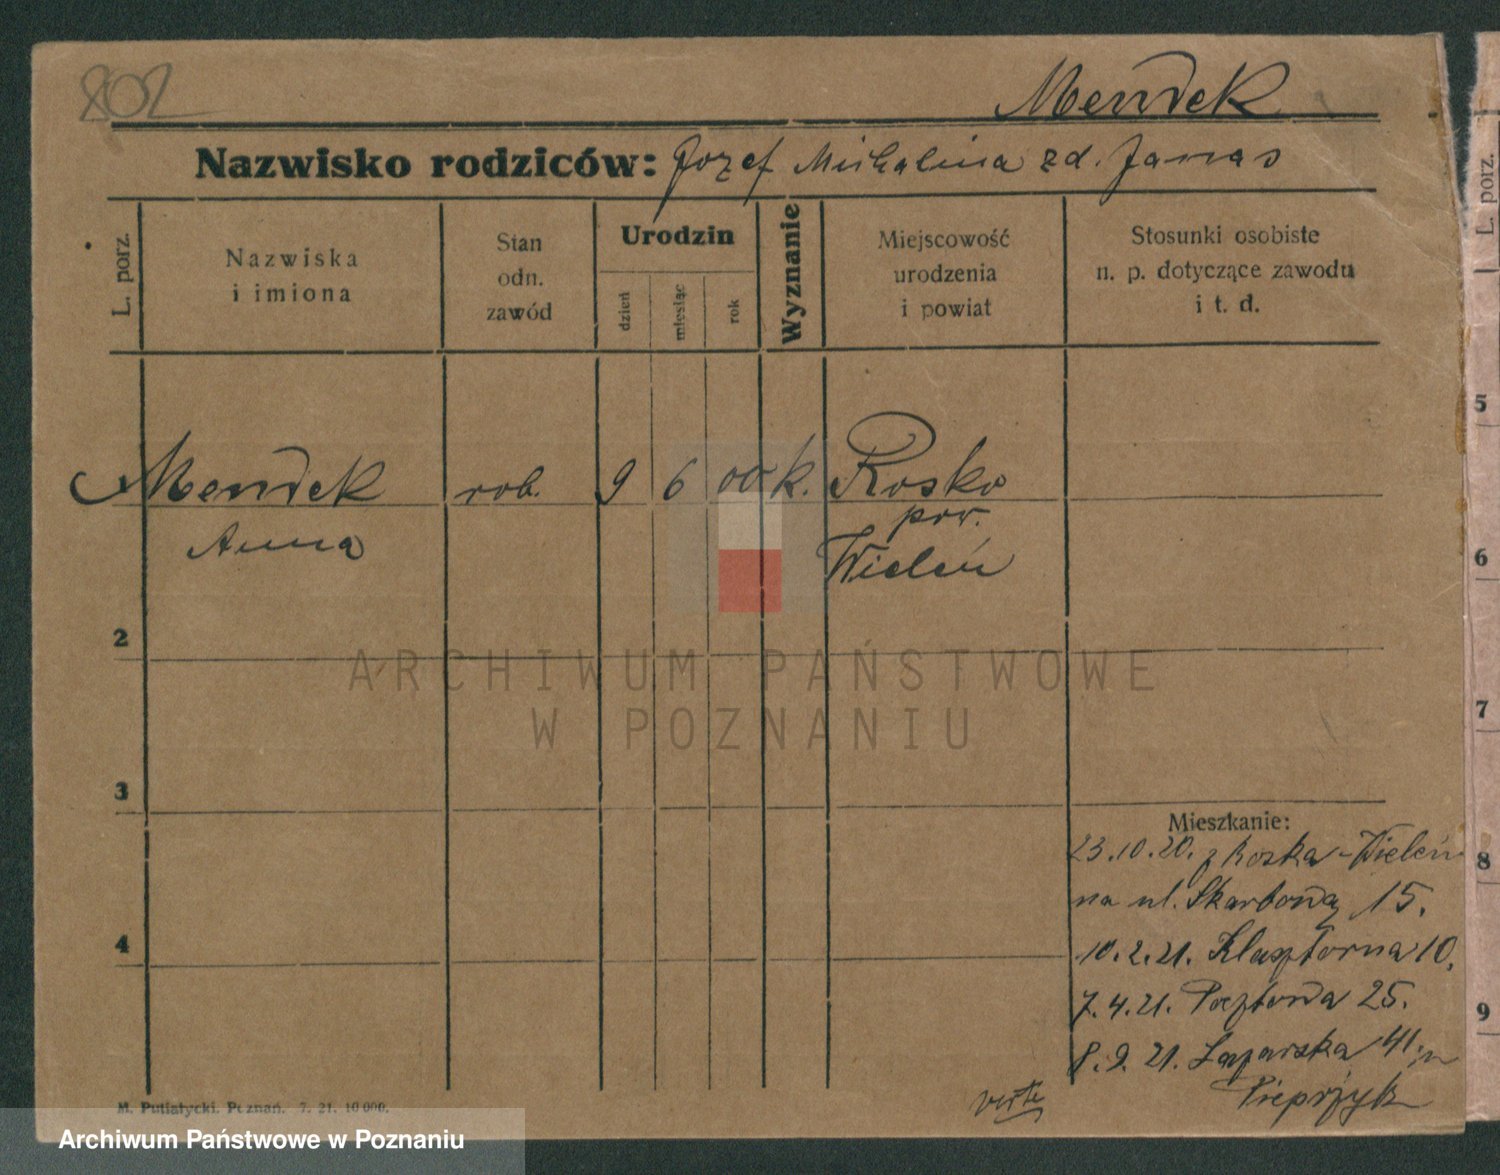 802
Mendek
Nazwisko rodziców: Jozef Michalina zd. Janas
L. porz.
Nazwiska
i imiona
Stan
odn.
zawód
Urodzin
dzień
miesiąc
rok
Wyznanie
Miejscowość
urodzenia
i powiat
Stosunki osobiste
n. p. dotyczące zawodu
i t. d.
Mendek rob. 9 6 00 k. Rosko
Anna
pow.
Wieleń
2
3
4
Mieszkanie:
23.10.20. z Roska-Wieleń
na ul. Skarbową 15.
10.2.21. Klasztorna 10.
7.4.21. Pocztowa 25.
8.9.21. Łazarska 41
Pieprzyk
verte
M. Putiatycki. Poznań. 7. 21. 10 000.
L. porz.
5
6
7
8
9
ARCHIWUM PAŃSTWOWE
W POZNANIU
Archiwum Państwowe w Poznaniu